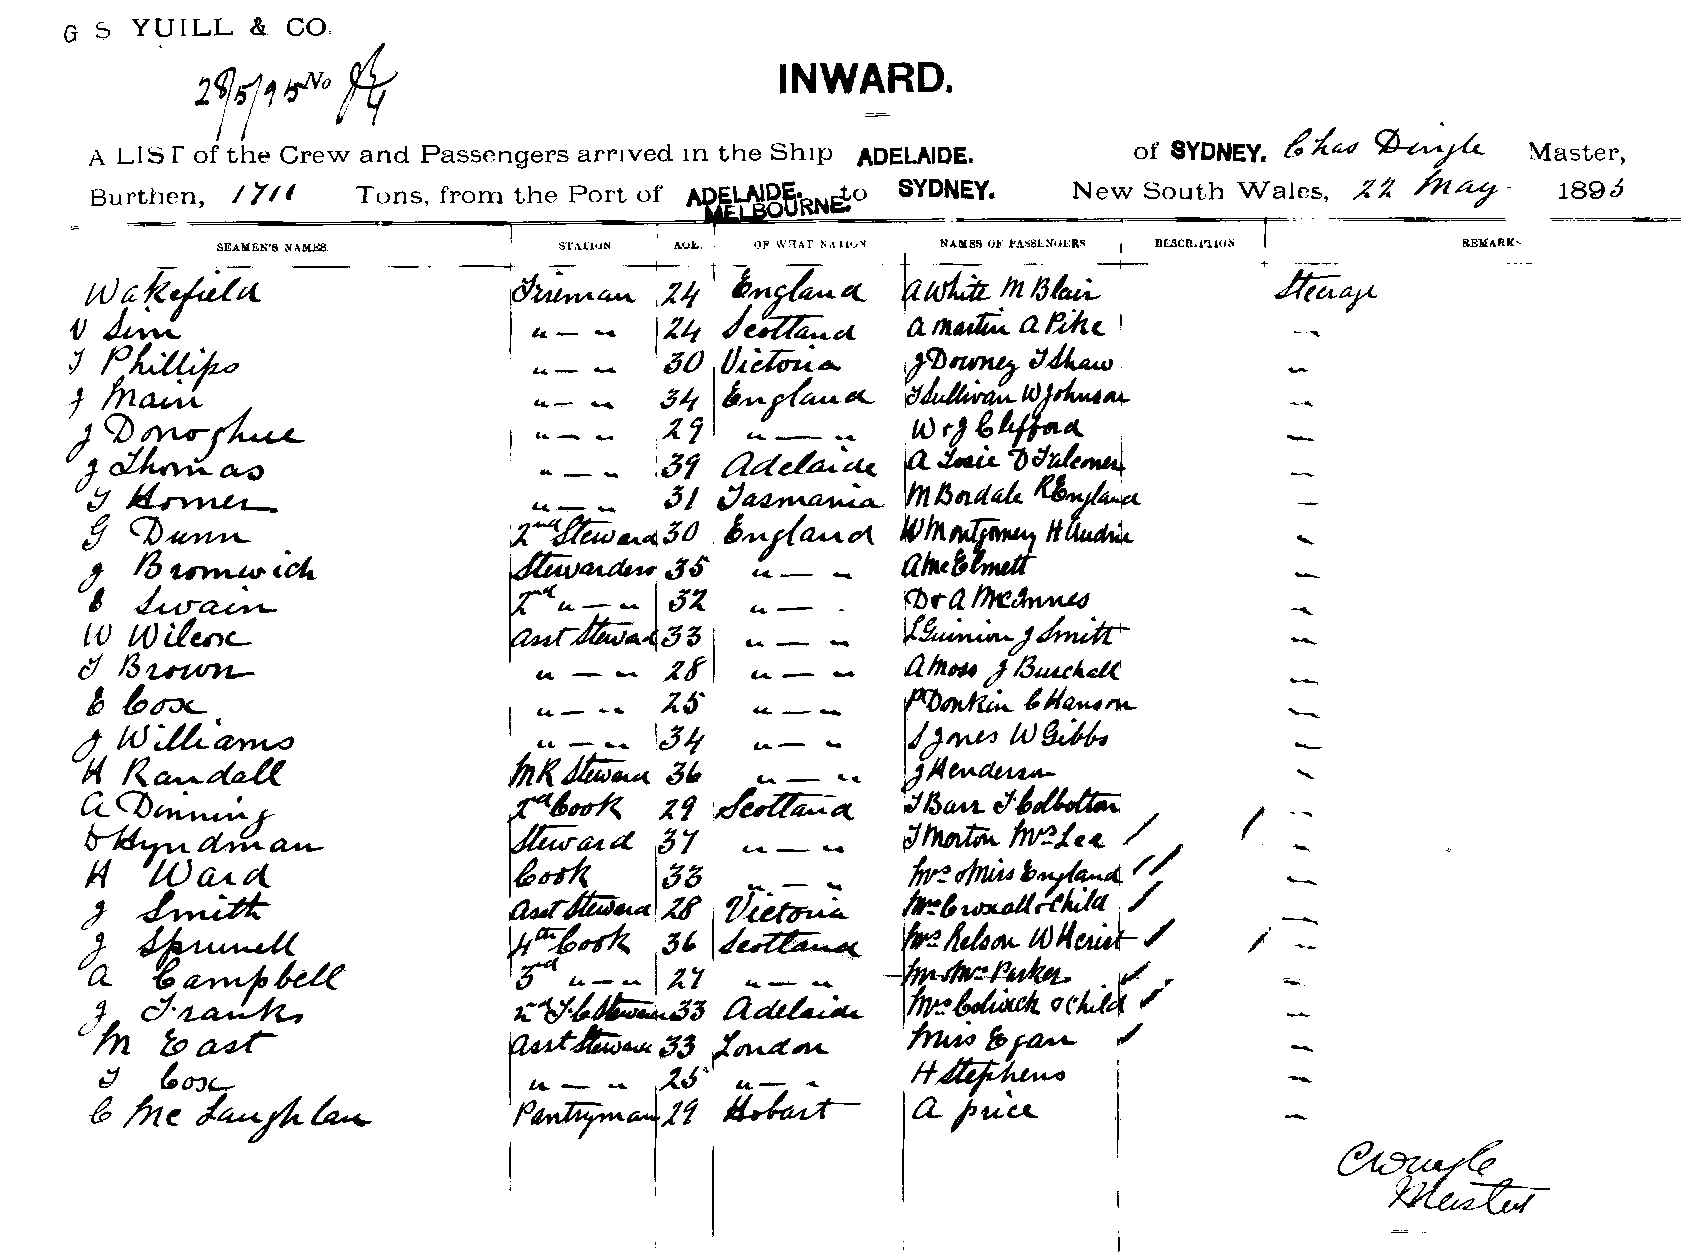 G S YUILL & CO.
28/5/95 No
INWARD.
A LIST of the Crew and Passengers arrived in the Ship ADELAIDE. of SYDNEY. Chas Dingle Master,
Burthen, 1711 Tons, from the Port of ADELAIDE. MELBOURNE. to SYDNEY. New South Wales, 22 May 1895
SEAMEN'S NAMES. STATION AGE. OF WHAT NATION NAMES OF PASSENGERS DESCRIPTION REMARKS
Wakefield Fireman 24 England A White M Blair Steerage
Sim " — " 24 Scotland A Martin A Pike "
T Phillips " — " 30 Victoria J Downey T Shaw "
J Main " — " 34 England T Sullivan W Johnson "
J Donoghue " — " 29 " — " W & J Clifford "
J Thomas " — " 39 Adelaide A D Falconer "
T Homer " — " 31 Tasmania M Bordale R England "
G Dunn 2nd Steward 30 England W Montgomery H "
J Bromwich Stewardess 35 " — " A McElmett "
E Swain 2nd " — " 32 " — " Dr A McInnes "
W Wilcox Asst Steward 33 " — " L Guinion J Smith "
T Brown " — " 28 " — " A Moss J Burchall "
E Cox " — " 25 " — " P Donkin C Hanson "
J Williams " — " 34 " — " S Jones W Gibbs "
H Randall MR Steward 36 " — " J Henderson "
A Dinning 2nd Cook 29 Scotland T Barr T Colbolton "
Hyndman Steward 37 " — " T Morton Mrs Lee "
H Ward Cook 33 " — " Mrs & Miss England "
J Smith Asst Steward 28 Victoria Mrs Croxall & Child "
J Sprunell 4th Cook 36 Scotland Mrs Relson W Heriot "
A Campbell 3rd " — " 27 " — " Mr & Mrs Parker "
J Franks 2nd S.C. Steward 33 Adelaide Mrs & Child "
M East Asst Steward 33 London Miss Egan "
T Cox " — " 25 " — " H Stephens "
C McLaughlan Pantryman 29 Hobart A Price "
C Dingle
Master